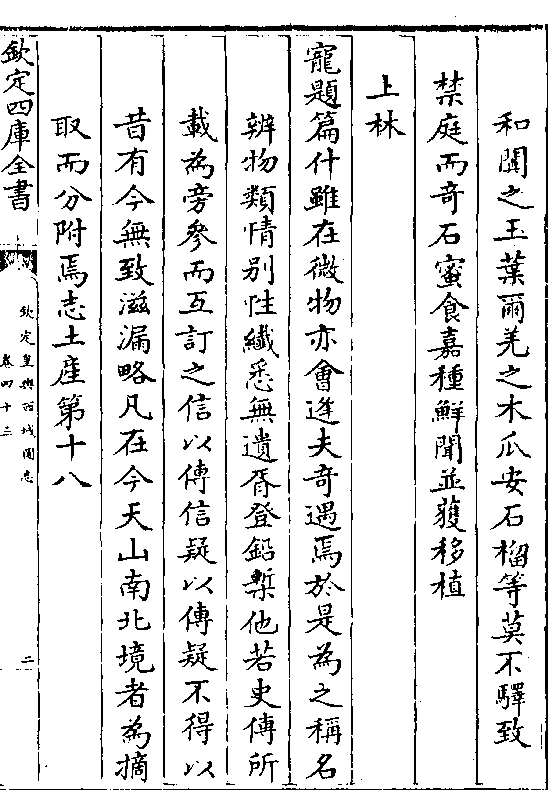 和闐之玉葉爾羌之木瓜安石榴等莫不驛致
禁庭而奇石蜜食嘉種鮮聞並獲移植
上林
寵題篇什雖在微物亦會逢夫奇遇焉於是為之稱名
辨物類情别性纎悉無遺胥登鉛槧他若史傳所
載為旁參而互訂之信以傳信疑以傳疑不得以
昔有今無致滋漏略凡在今天山南北境者為摘
取而分附焉志土産第十八
欽定四庫全書
欽定皇輿西域圖志
卷四十三
二